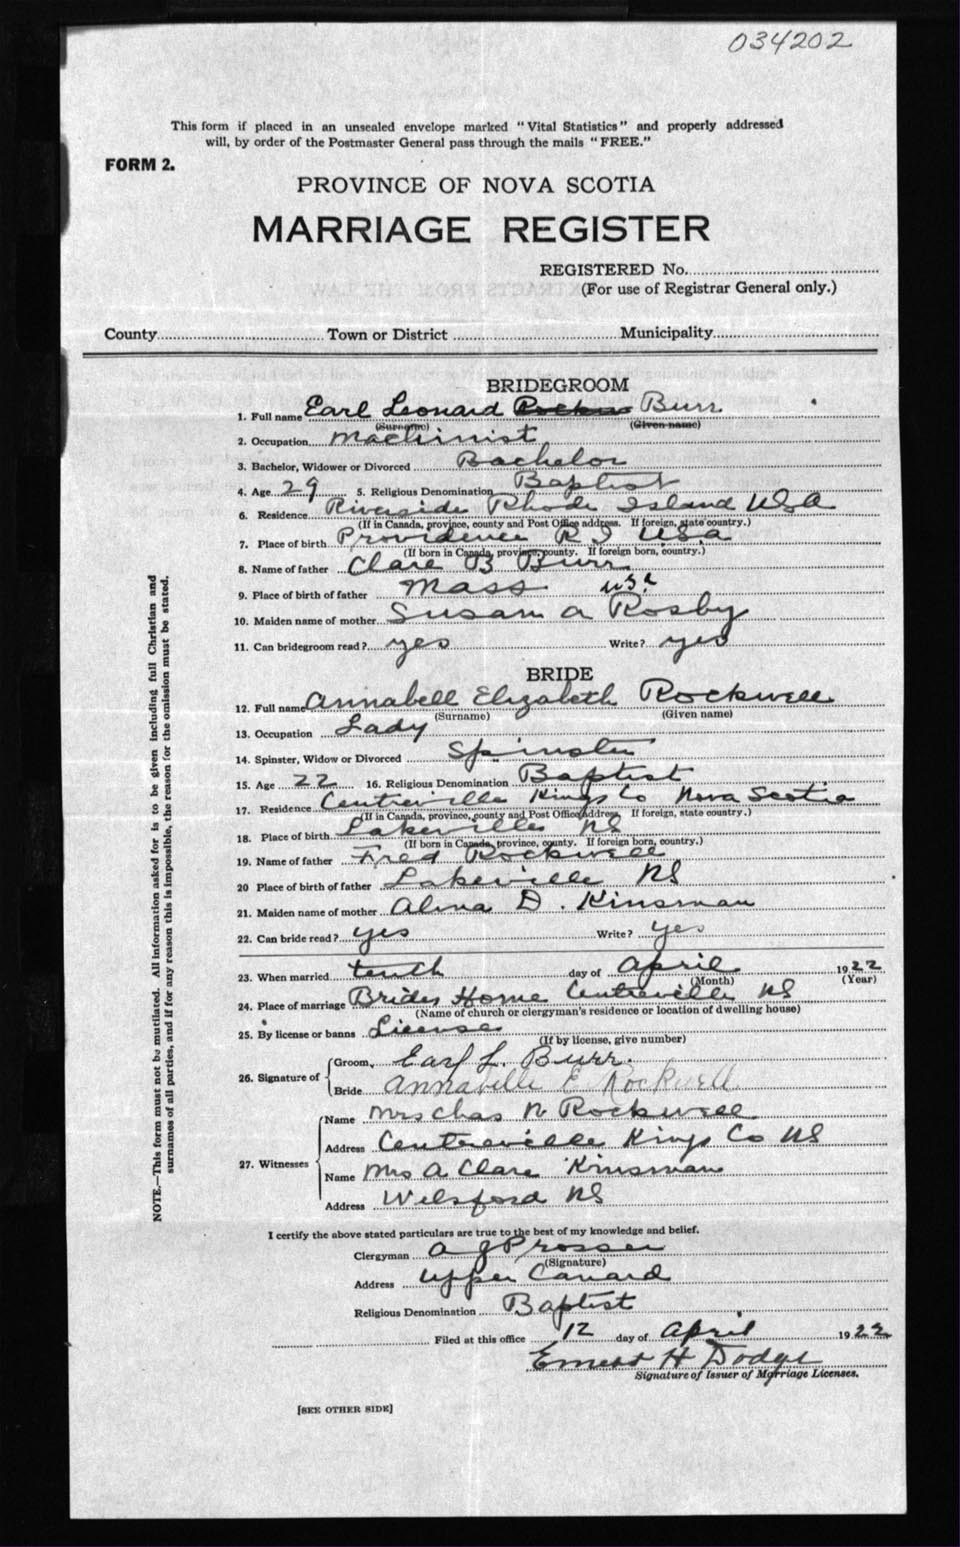 034202
This form if placed in an unsealed envelope marked "Vital Statistics" and properly addressed
will, by order of the Postmaster General pass through the mails "FREE."
FORM 2.
PROVINCE OF NOVA SCOTIA
MARRIAGE REGISTER
REGISTERED No.
(For use of Registrar General only.)
County Town or District Municipality
BRIDEGROOM
1. Full name Earl Leonard Burr
(Surname) (Given name)
2. Occupation Machinist
3. Bachelor, Widower or Divorced Bachelor
4. Age 29 5. Religious Denomination Baptist
6. Residence Riverside Rhode Island USA
(If in Canada, province, county and Post Office address. If foreign, state country.)
7. Place of birth Providence R I USA
(If born in Canada, province, county. If foreign born, country.)
8. Name of father Clare B Burr
9. Place of birth of father Mass USA
10. Maiden name of mother Susam A Rosby
11. Can bridegroom read? yes Write? yes
BRIDE
12. Full name Annabell Elizabeth Rockwell
(Surname) (Given name)
13. Occupation Lady
14. Spinster, Widow or Divorced Spinster
15. Age 22 16. Religious Denomination Baptist
17. Residence Centreville Kings Co Nova Scotia
(If in Canada, province, county and Post Office Address. If foreign, state country.)
18. Place of birth Lakeville NS
(If born in Canada, province, county. If foreign born, country.)
19. Name of father Fred Rockwell
20 Place of birth of father Lakeville NS
21. Maiden name of mother Alma D. Kinsman
22. Can bride read? yes Write? yes
23. When married tenth day of April 1922
(Month) (Year)
24. Place of marriage Brides Home Centreville NS
(Name of church or clergyman's residence or location of dwelling house)
25. By license or banns License
(If by license, give number)
26. Signature of Groom, Earl L. Burr.
Bride Annabelle E Rockwell
27. Witnesses
Name Mrs Chas N Rockwell
Address Centreville Kings Co NS
Name Mrs A Clare Kinsman
Address Welsford NS
I certify the above stated particulars are true to the best of my knowledge and belief.
Clergyman A J Prosser
(Signature)
Address Upper Canard
Religious Denomination Baptist
Filed at this office 12 day of April 1922
Ernest H Dodge
Signature of Issuer of Marriage Licenses.
[SEE OTHER SIDE]
NOTE.—This form must not be mutilated. All information asked for is to be given including full Christian and
surnames of all parties, and if for any reason this is impossible, the reason for the omission must be stated.